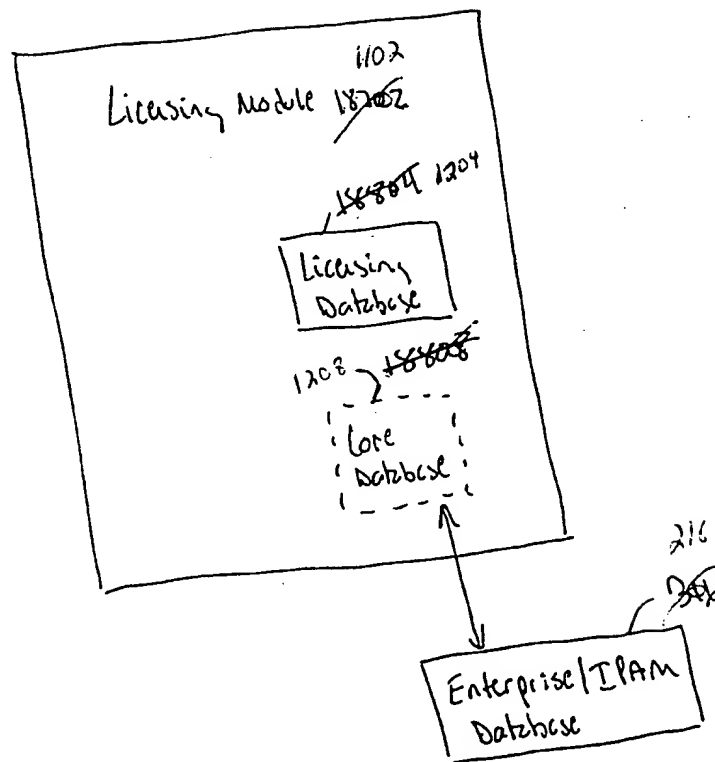 1102
Licensing Module 18202
18804 1204
Licensing
Database
1208 18808
Core
Database
216
Enterprise/IPAM
Database